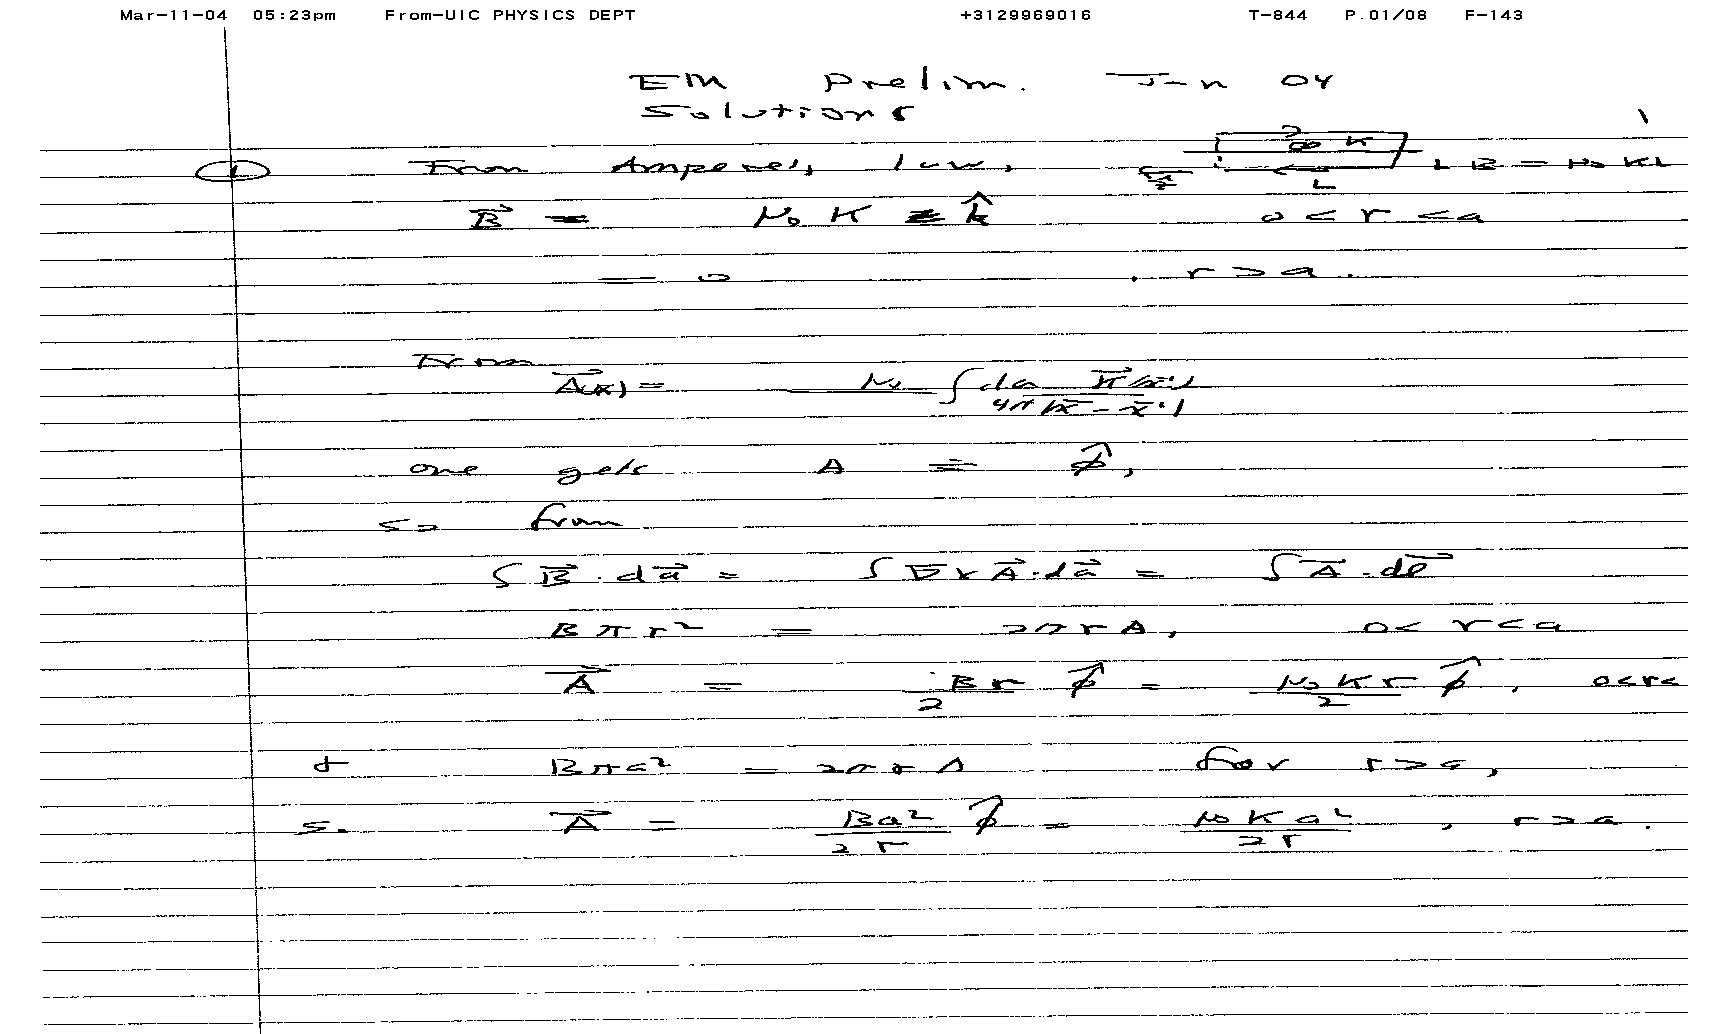 Mar-11-04 05:23pm From-UIC PHYSICS DEPT +3129969016 T-844 P.01/08 F-143
EM Prelim. Jan 04
Solutions 1
① From Ampere's law, ∞ K L B = μ₀ K L
B⃗ = μ₀ K k̂ 0 < r < a
= 0 , r > a.
From
A⃗(x) = μ₀ ∫ da K⃗(x⃗') / 4π|x⃗ - x⃗'|
one gets A = φ̂,
so from
∫ B⃗ · da⃗ = ∫ ∇ x A⃗ · da⃗ = ∫ A⃗ · dl⃗
B π r² = 2π r A, 0 < r < a
A⃗ = Br/2 φ̂ = μ₀ K r/2 φ̂, 0<r<
+ B π a² = 2π r A for r > a,
So A⃗ = Ba²/2r φ̂ = μ₀ K a²/2r , r > a.